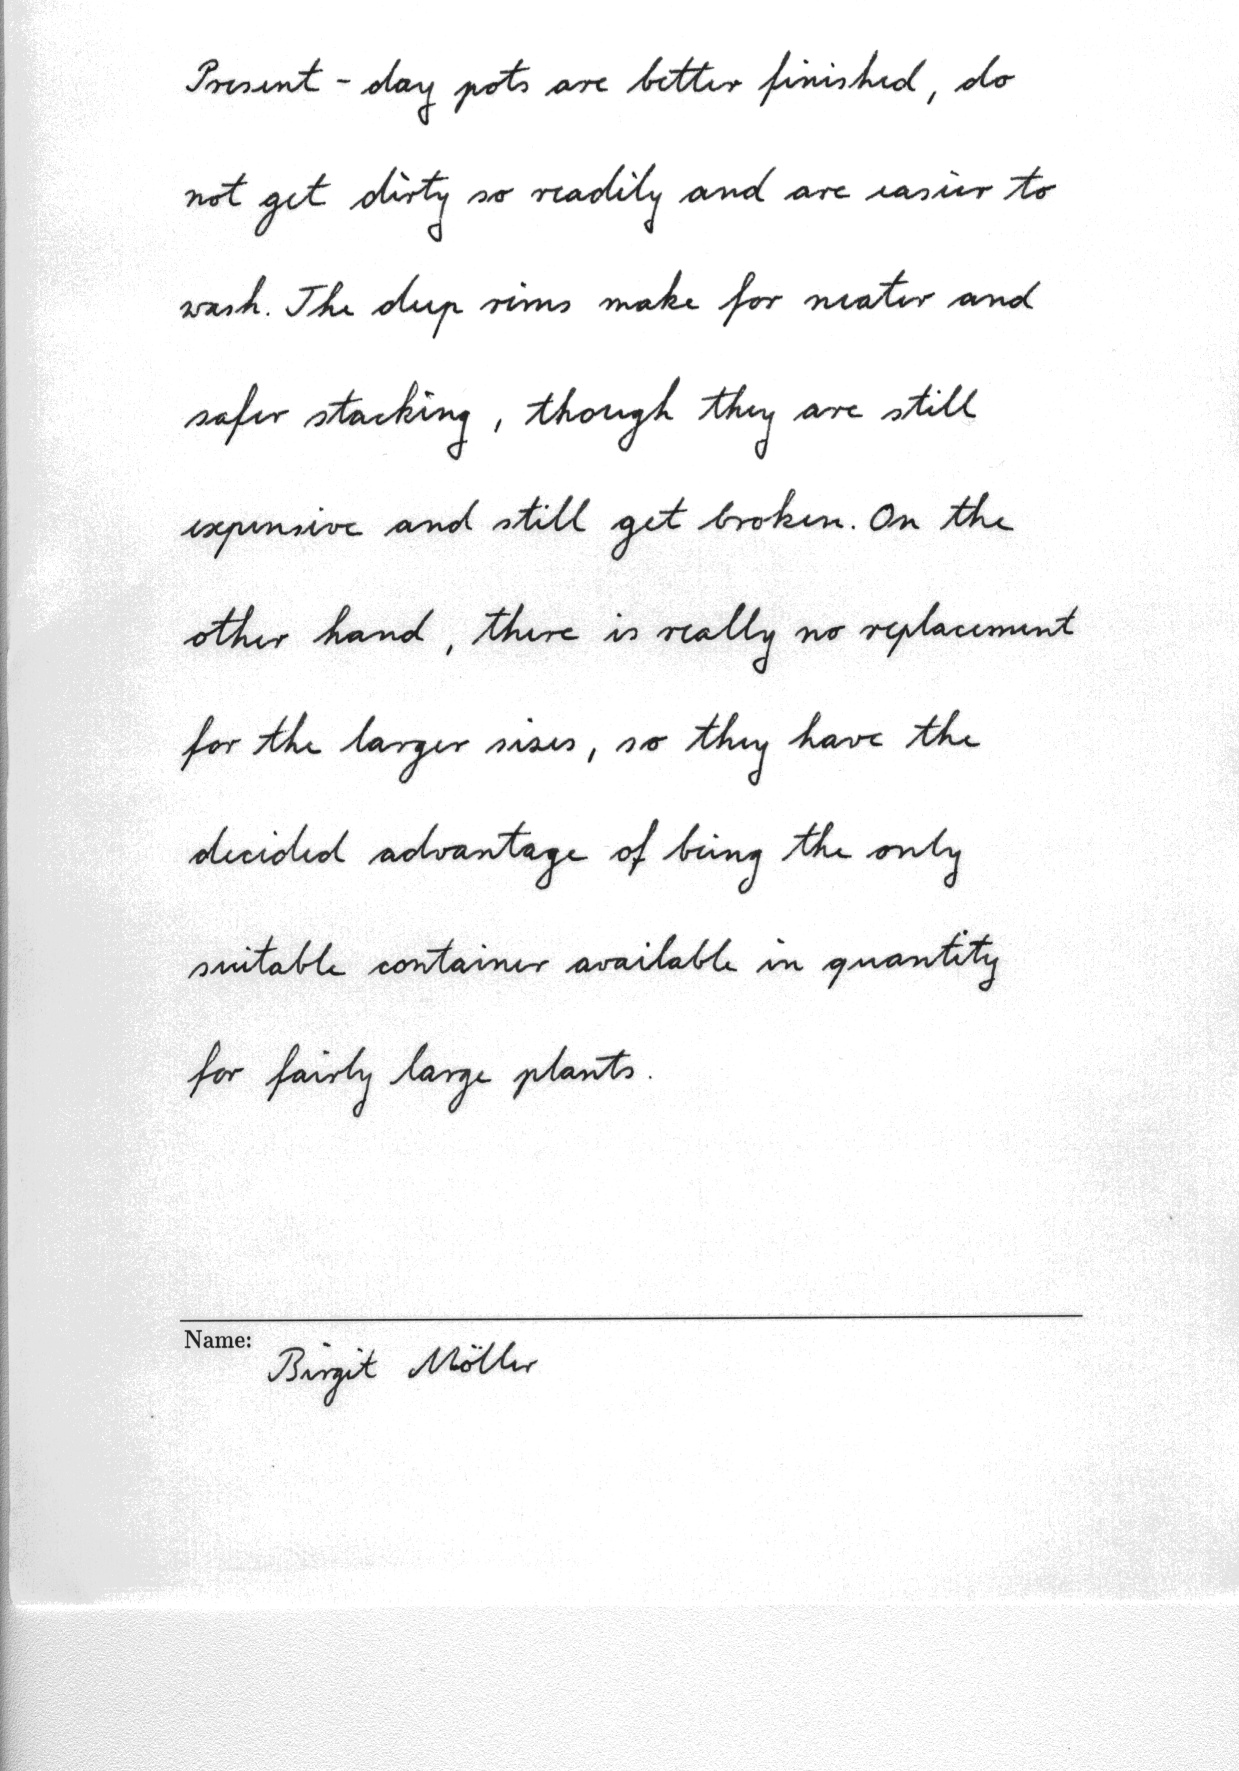 Present - day pots are better finished, do
not get dirty so readily and are easier to
wash. The deep rims make for neater and
safer stacking, though they are still
expensive and still get broken. On the
other hand, there is really no replacement
for the larger sises, so they have the
decided advantage of being the only
suitable container available in quantity
for fairly large plants.
Name:
Birgit Möller